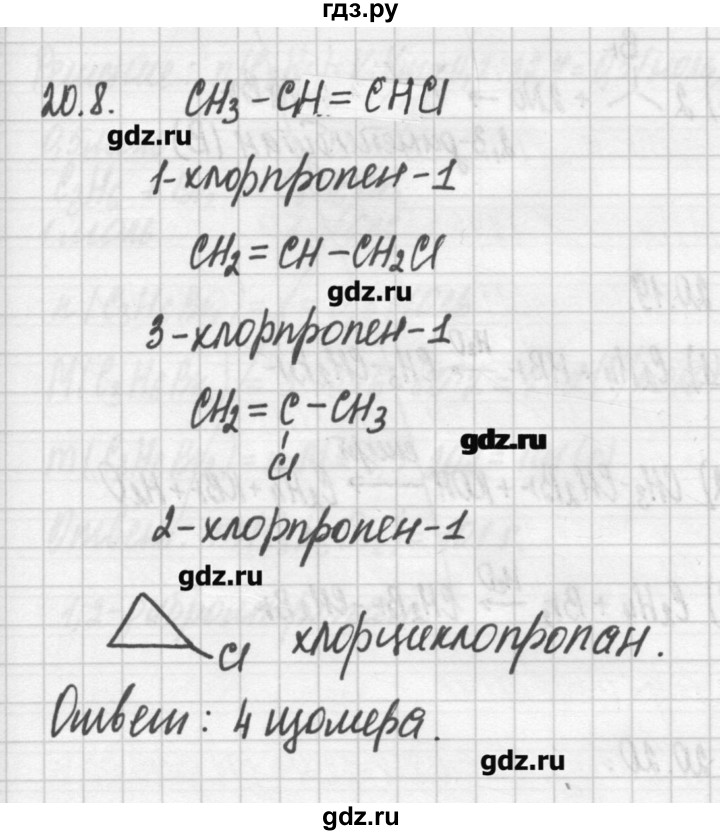 гдз.ру
20.8. CH3-CH=CHCl
gdz.ru
1-хлорпропен-1
CH2=CH-CH2Cl
gdz.ru
3-хлорпропен-1
CH2=C-CH3
gdz.ru
Cl
2-хлорпропен-1
gdz.ru
Cl хлорциклопропан.
Ответ: 4 изомера.
gdz.ru
gdz.ru